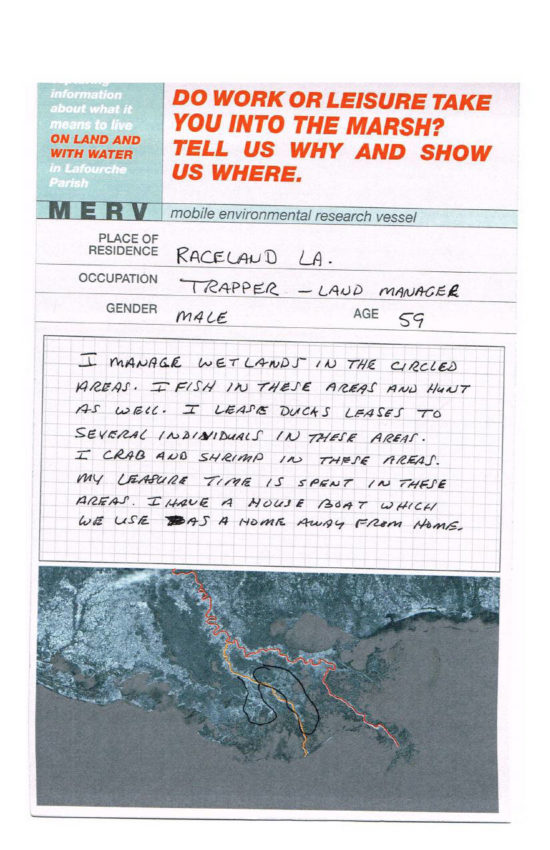 information
about what it
means to live
ON LAND AND
WITH WATER
in Lafourche
Parish
DO WORK OR LEISURE TAKE
YOU INTO THE MARSH?
TELL US WHY AND SHOW
US WHERE.
MERV
mobile environmental research vessel
PLACE OF
RESIDENCE
RACELAND LA.
OCCUPATION
TRAPPER - LAND MANAGER
GENDER
MALE
AGE
59
I MANAGE WETLANDS IN THE CIRCLED
AREAS. I FISH IN THESE AREAS AND HUNT
AS WELL. I LEASE DUCKS LEASES TO
SEVERAL INDIVIDUALS IN THESE AREAS.
I CRAB AND SHRIMP IN THESE AREAS.
MY LEASURE TIME IS SPENT IN THESE
AREAS. I HAVE A HOUSE BOAT WHICH
WE USE AS A HOME AWAY FROM HOME.